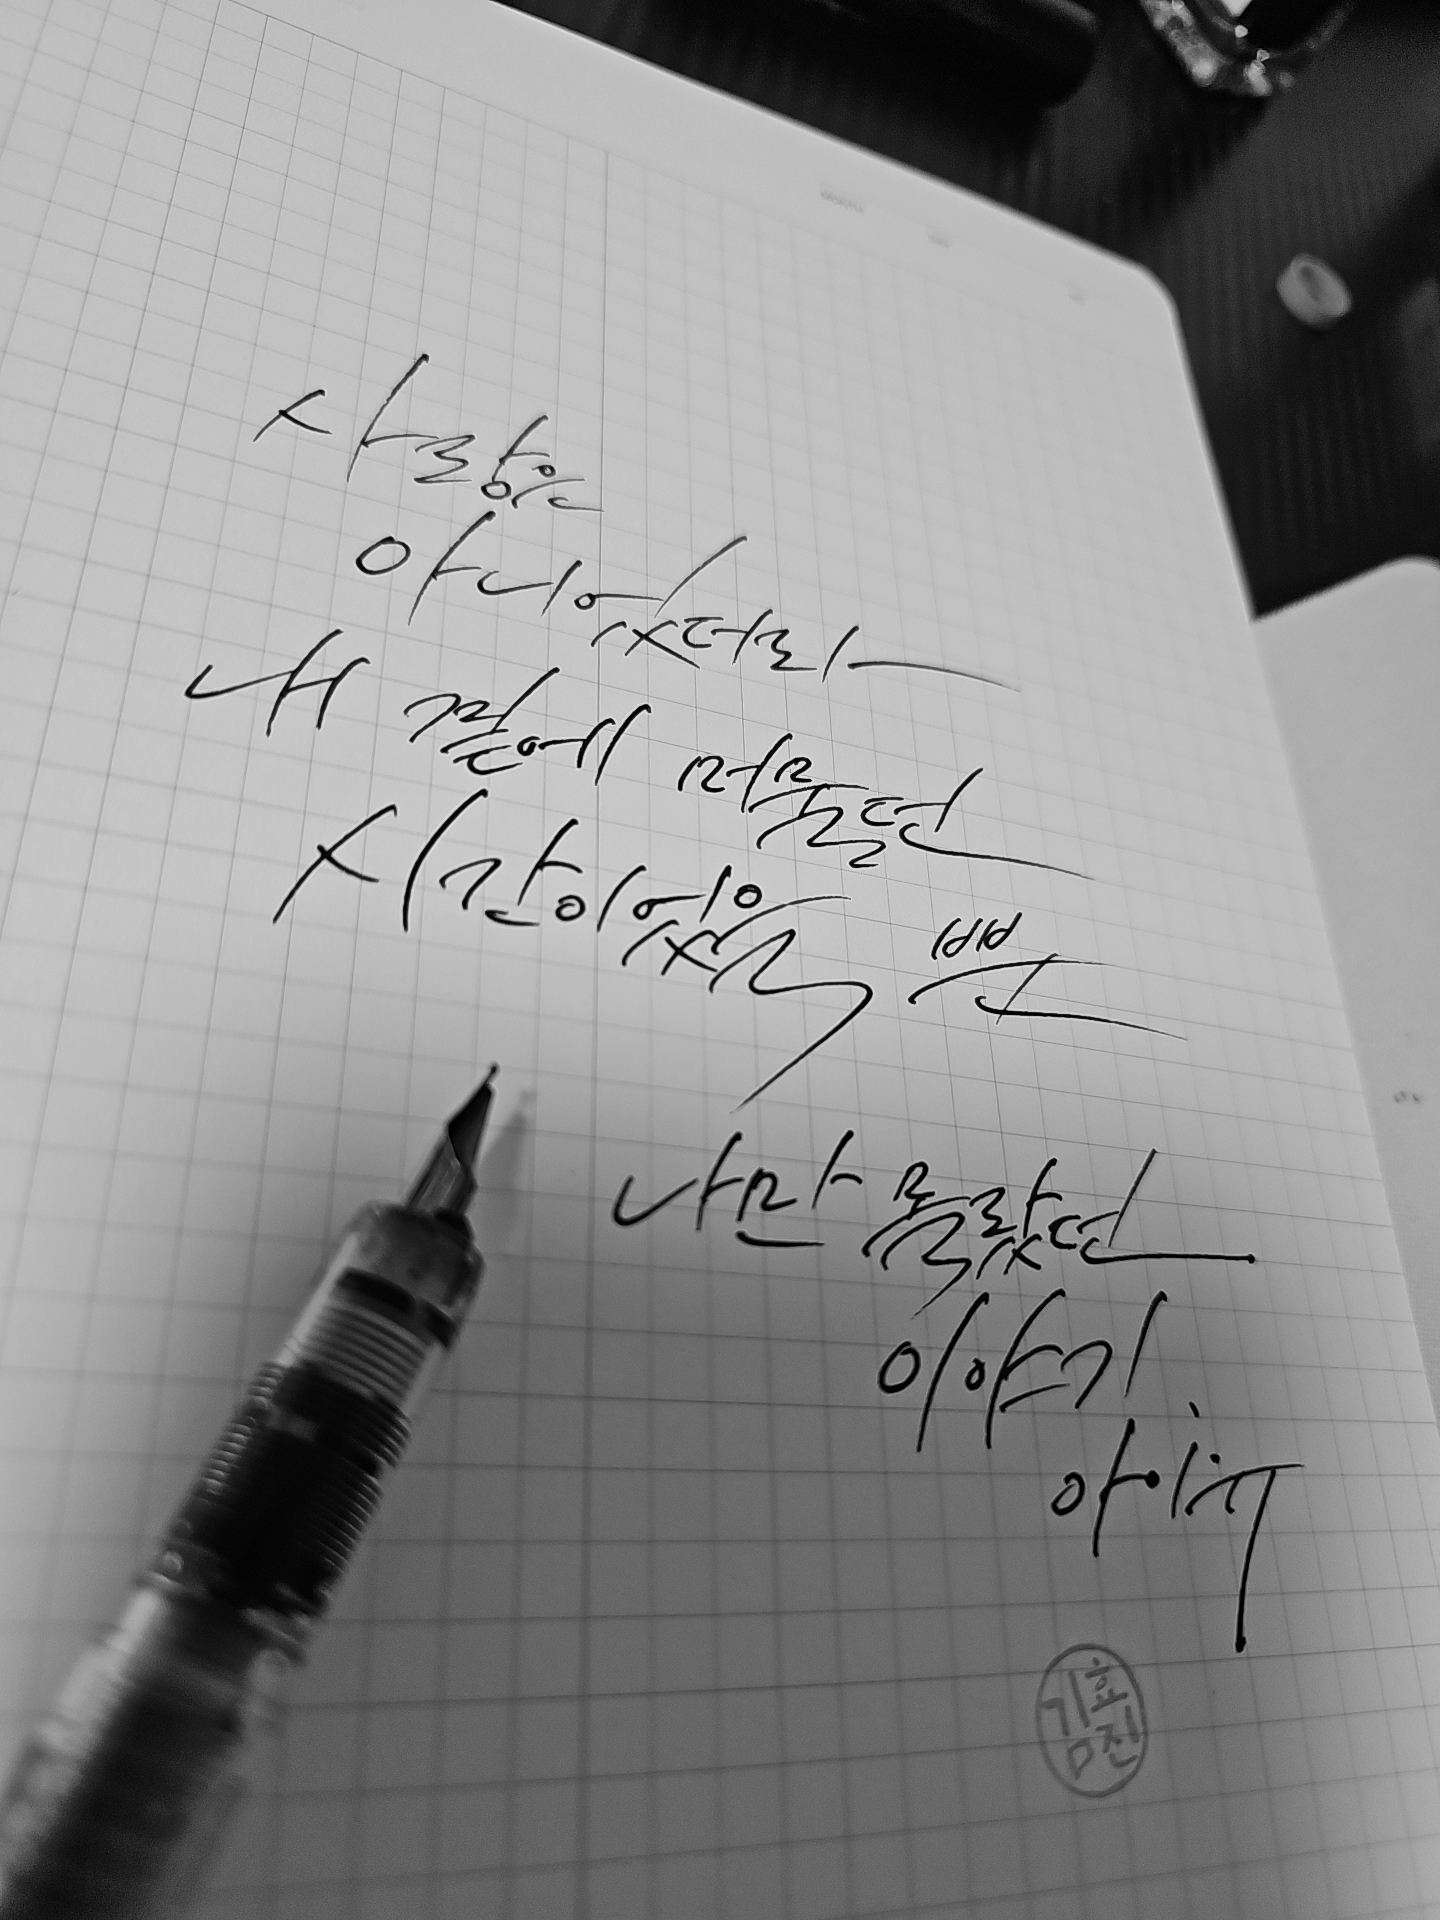 사랑은
아니었더라
내 곁에 머물던
시간이었을 뿐
나만 몰랐던
이야기
김효진